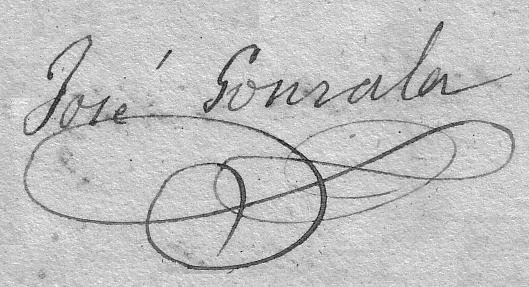 José Gonzalez